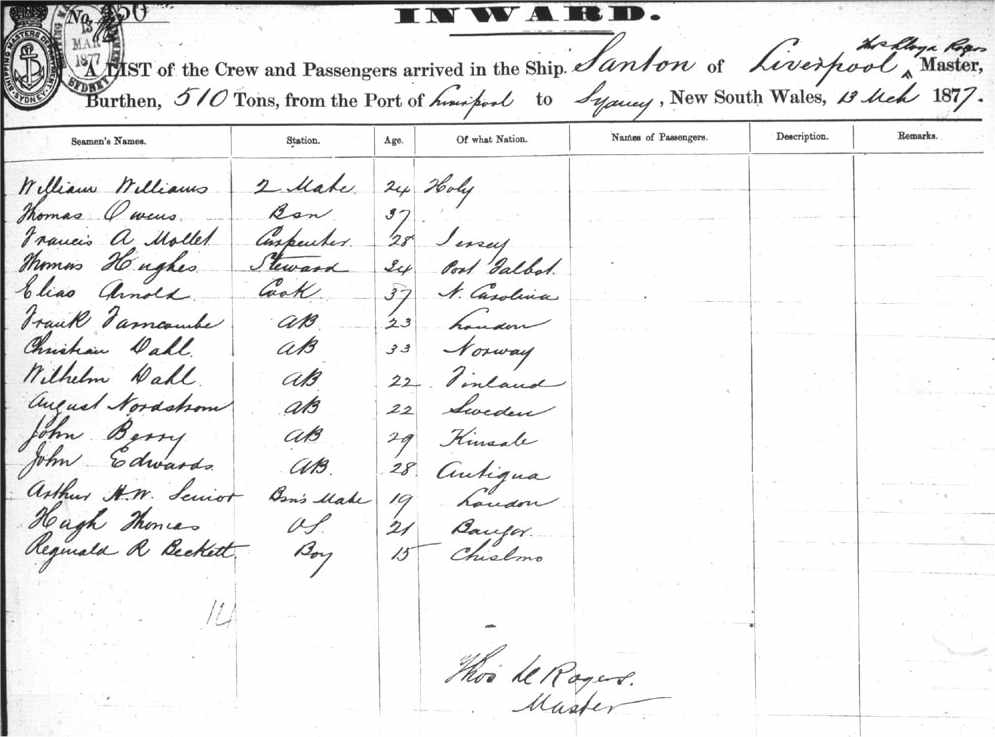 INWARD.
No. 50
SHIPPING MASTERS DEPARTMENT SYDNEY
13 MAR 1877 SYDNEY
Thos Lloyd Rogers
A LIST of the Crew and Passengers arrived in the Ship. Santon of Liverpool ^ Master,
Burthen, 510 Tons, from the Port of Liverpool to Sydney, New South Wales, 13 Mch 1877.
Seamen's Names. Station. Age. Of what Nation. Names of Passengers. Description. Remarks.
William Williams 2 Mate 24 Holy
Thomas Owens Bsn 37
Francis A Mollet Carpenter 28 Jersey
Thomas Hughes Steward 24 Port Talbot.
Elias Arnold Cook 37 N. Carolina
Frank Farncombe AB 23 London
Christian Dahl AB 33 Norway
Wilhelm Dahl AB 22 Finland
August Nordstrom AB 22 Sweden
John Berry AB 29 Kinsale
John Edwards AB. 28 Antigua
Arthur H.W. Senior Bsn's Mate 19 London
Hugh Thomas OS 21 Bangor.
Reginald R Beckett Boy 15 Chislmo
14
Thos Ll Rogers.
Master